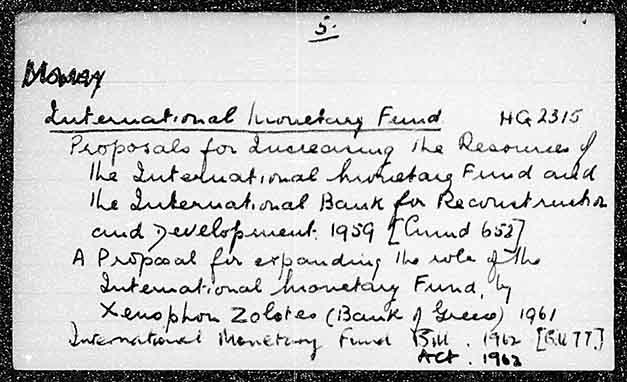 5.
Money
International Monetary Fund HG 2315
Proposals for Increasing the Resources of
the International Monetary Fund and
the International Bank for Reconstruction
and Development. 1959 [Cmnd 652]
A Proposal for expanding the role of the
International Monetary Fund, by
Xenophon Zolotes (Bank of Greece) 1961
International Monetary Fund Bill. 1962 [Bill 77.]
Act. 1962